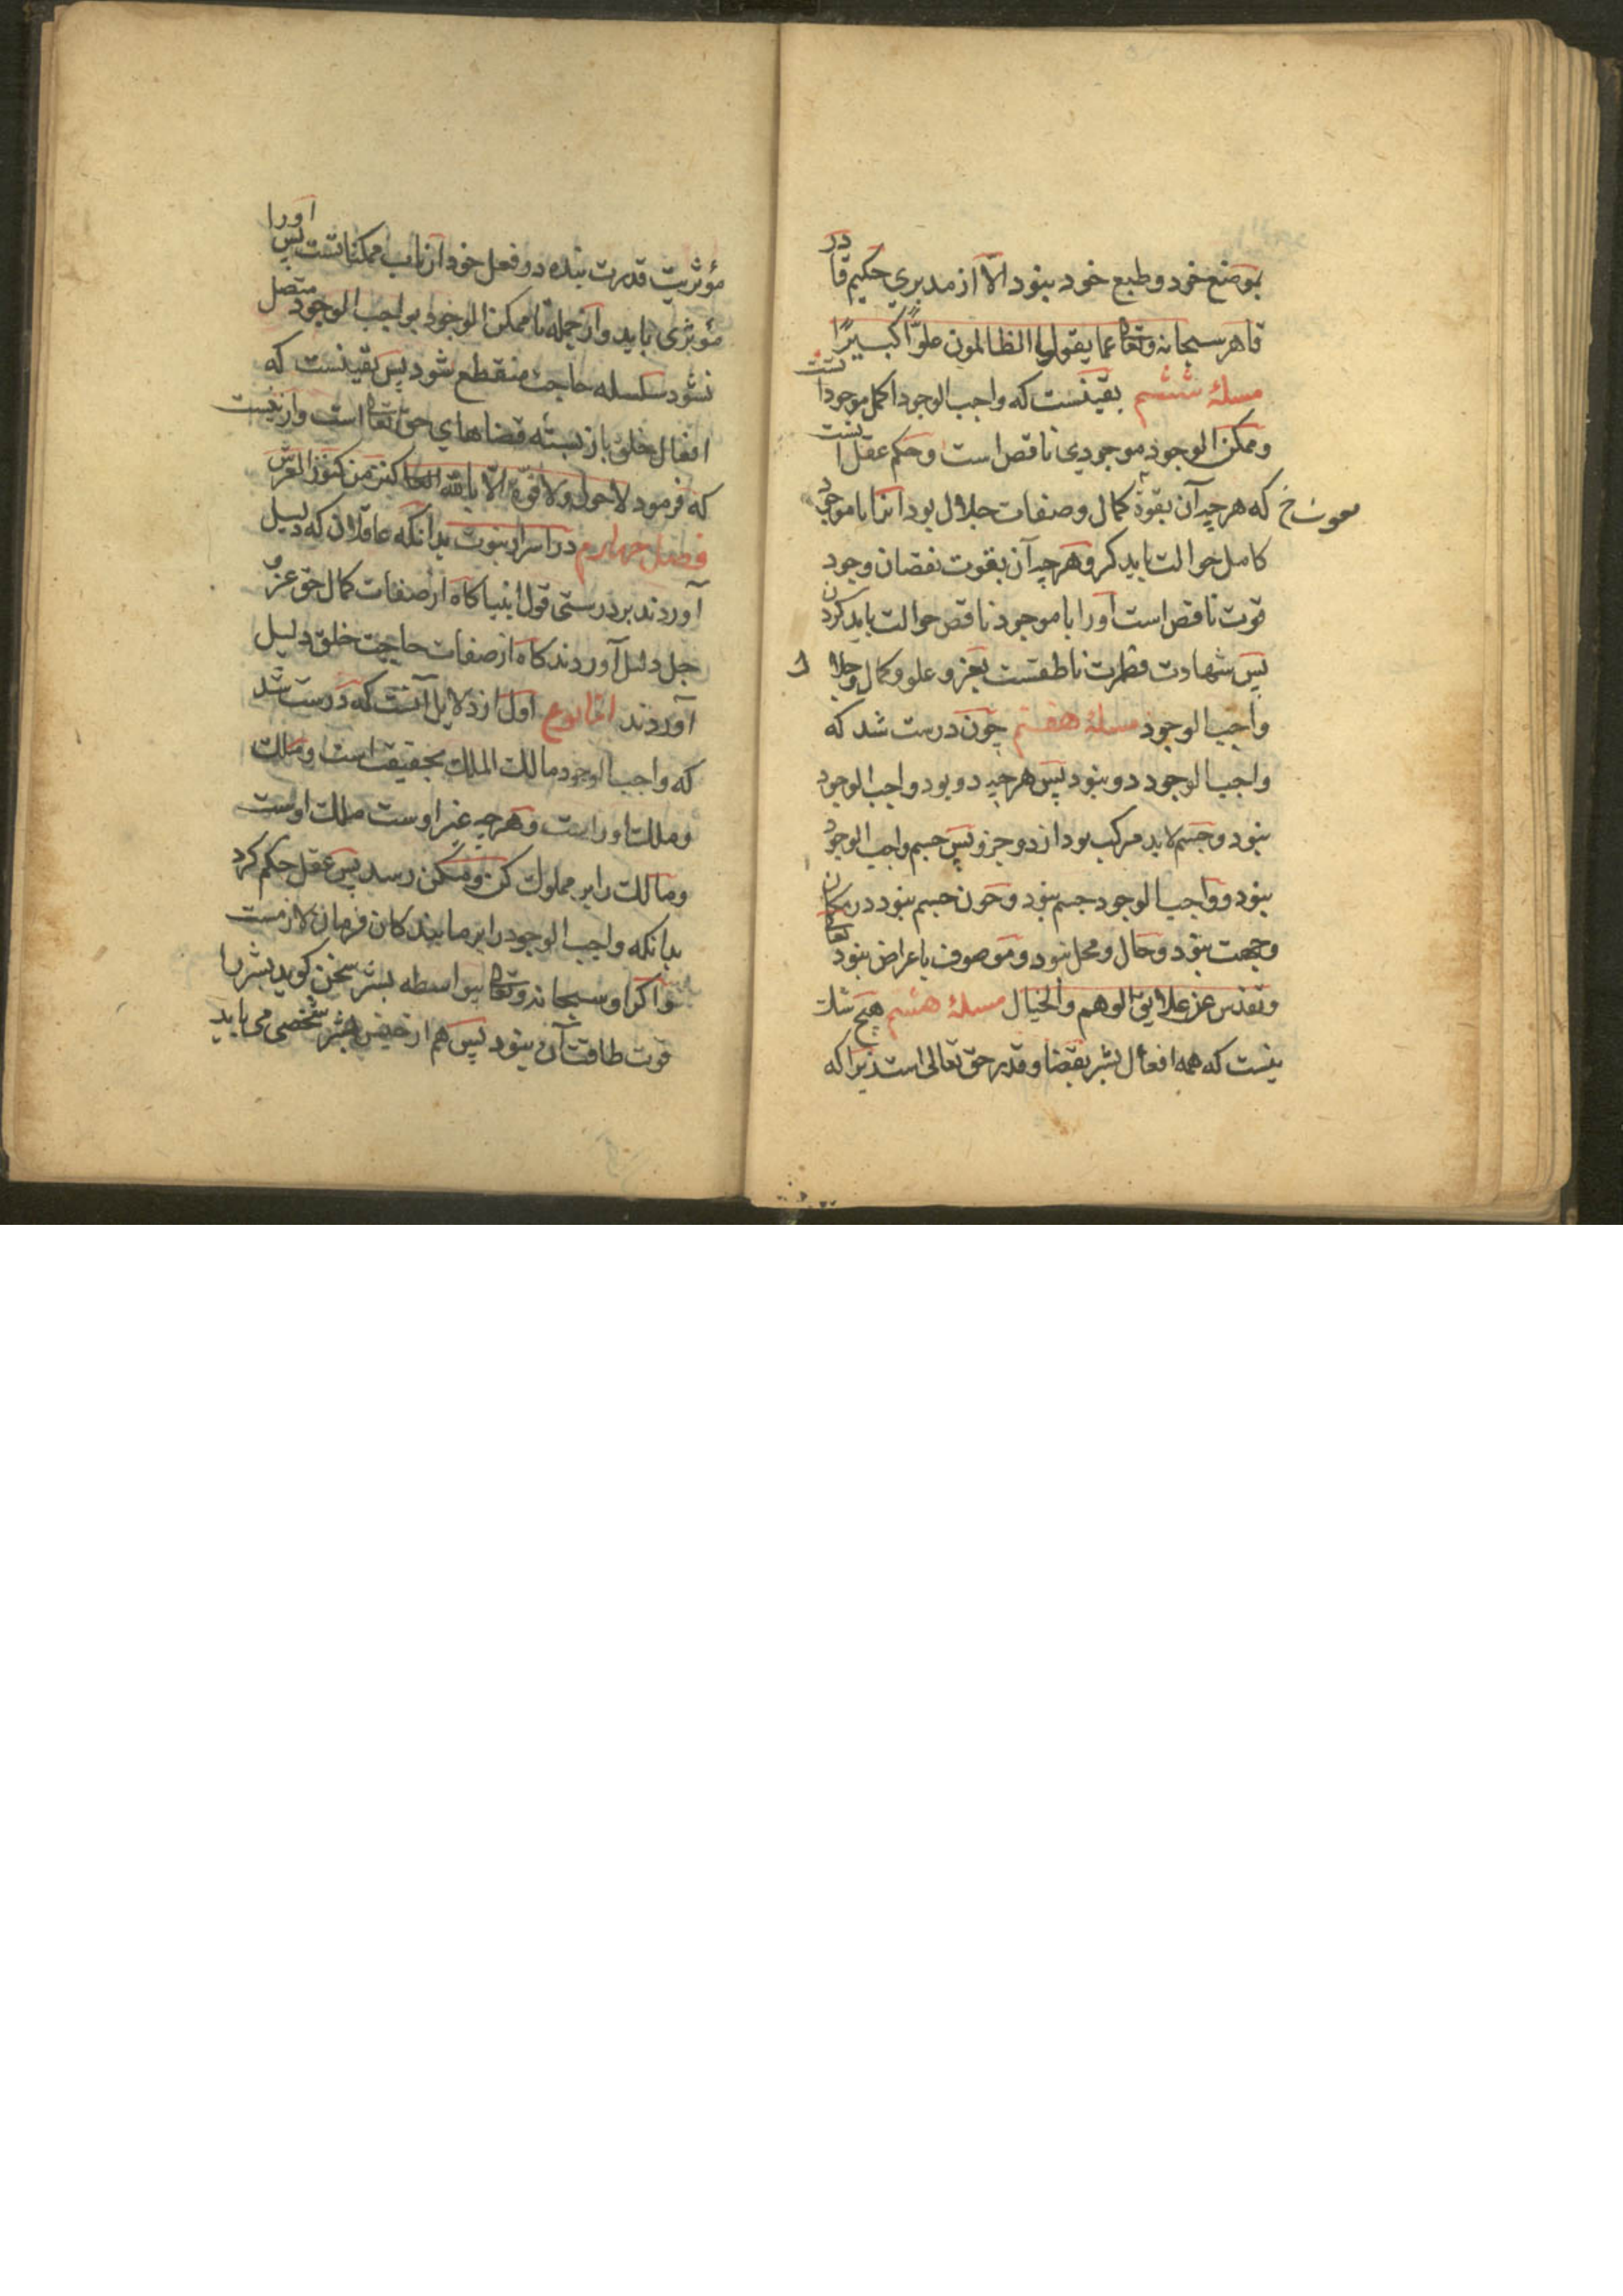 بموضع خود و طبع خود نبود الّا از مدبری حکیم قادر
قاهر سبحانه وتعالی عما یقولوا الظالمون علوّاً کبیرًا
مسلهٔ ششم یقینست که واجب الوجود اکمل موجوداتست
وممکن الوجود موجودی ناقص است وحکم عقل آنست
که هرچه آن بقوة کمال وصفات جلال بود انرا با موجود
کامل حوالت باید کرد وهرچه آن بقوت نقصان وجود
قوت ناقص است اورا با موجود ناقص حوالت باید کردن
پس شهادت فطرت ناطقست بعز و علو و کمال وجلال
واجب الوجود مسلهٔ هفتم چون درست شد که
واجب الوجود دو نبود پس هرچه دو بود واجب الوجود
نبود وجسم لابد مرکب بود از دو جزو پس جسم واجب الوجود
نبود و واجب الوجود جسم نبود وچون جسم نبود در مکان
وجهت نبود وحال ومحل نبود وموصوف باعراض نبود تعالی
وتقدس عن علایق الوهم والخیال مسلهٔ هشتم هیچ شک
نیست که همه افعال بشر بقضا وقدر حق تعالی است زیرا که
مؤثریت قدرت بنده در فعل خود از باب ممکناتست پس اورا
مؤثری باید واز جمله تا ممکن الوجود بواجب الوجود متصل
نشود سلسله حاجت منقطع شود پس یقینست که
افعال خلق باز بسته قضاهای حق تعالی است وازینست
که فرمود لاحول ولا قوّة الّا بالله کنز من کنوز العرش
فصل چهارم در اسرار نبوت بدانکه عاقلان که دلیل
آوردند بر درستی قول انبیا کاه از صفات کمال حق عزّ و
جل دلیل آوردند کاه از صفات حاجت خلق دلیل
آوردند اما نوع اول از دلایل آنست که درست شد
که واجب الوجود مالک الملک بحقیقت است وملک
وملک اوراست وهرچه غیر اوست ملک اوست
ومالک را بر مملوک کن ومکن رسد پس عقل حکم کرد
بدانکه واجب الوجود را بر ما بندکان فرمان لازمست
واکر او سبحانه وتعالی بیواسطه بشر سخن کوید بشر را
قوت طاقت آن نبود پس هم از جنس بشر شخصی می باید